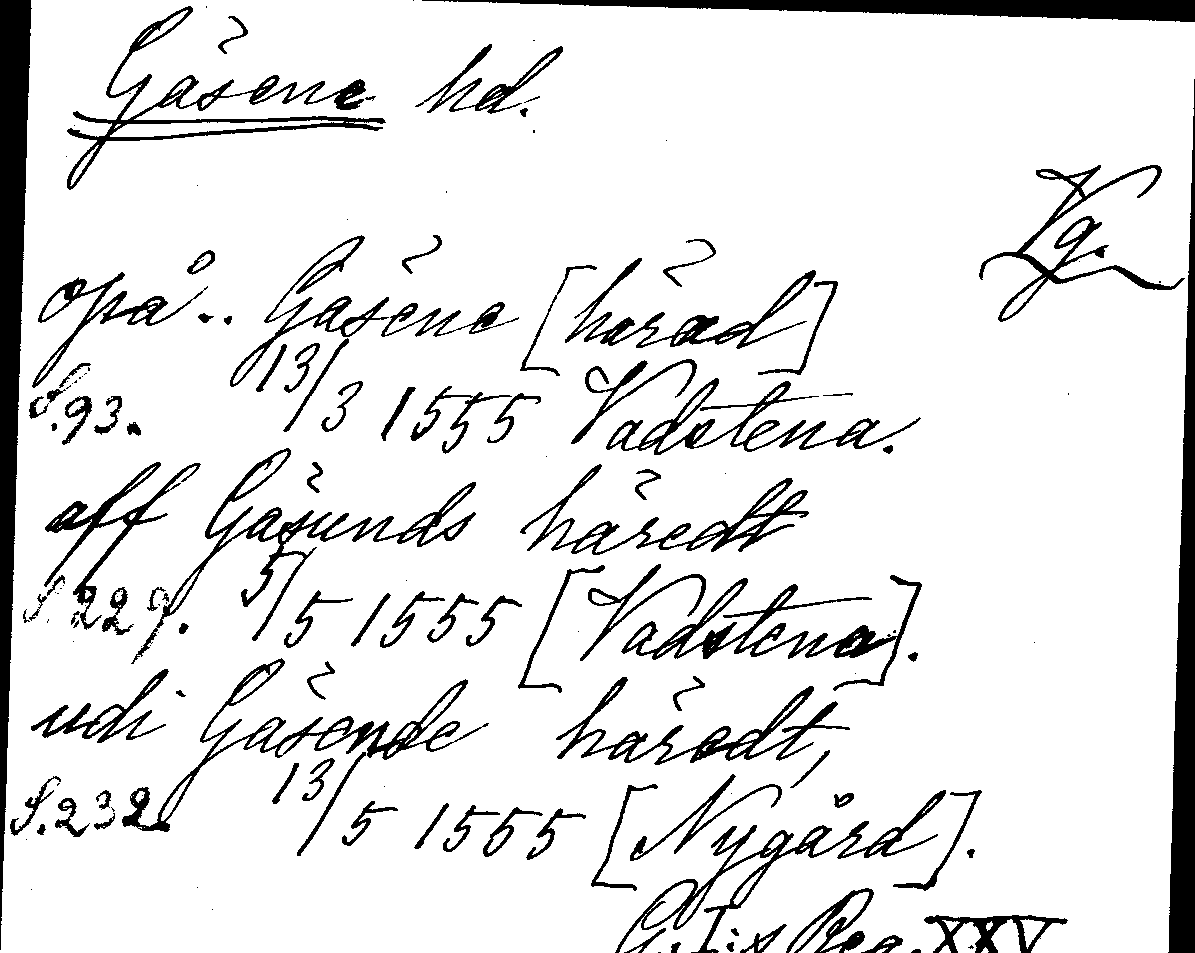 Gäsene hd.
Vg.
opå.. Gäsene [härad]
S.93. 13/3 1555 Vadstena.
aff Gäsunds häredt
S.229. 5/5 1555 [Vadstena].
udi Gäsende häredt,
S.232. 13/5 1555 [Nygård].
G. I:s Reg. XXV